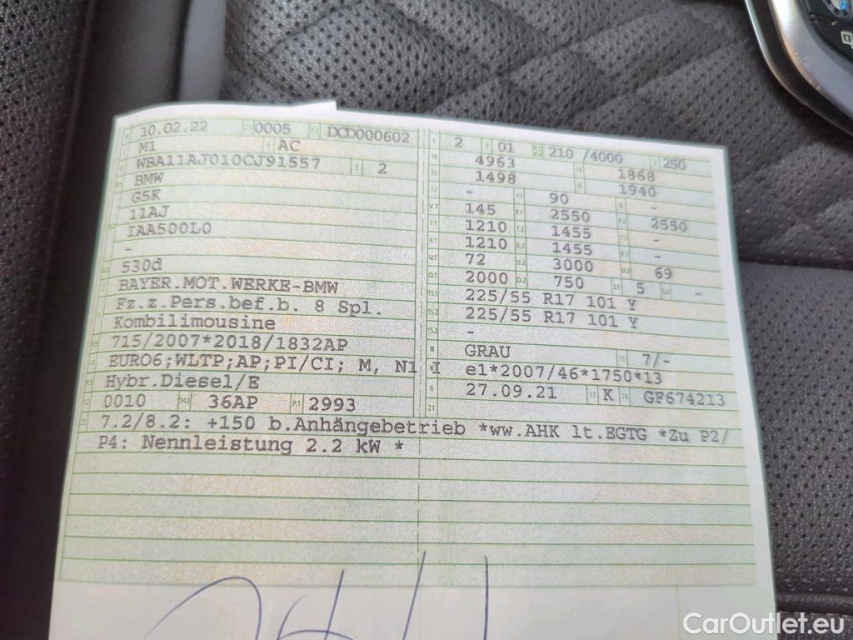 10.02.22 0005 DCD000602 2 01 210 /4000 250
M1 AC 4963 1868
WBA11AJ010CJ91557 2 1498 1940
BMW - 90 -
G5K 145 2550 2550
11AJ 1210 1455 -
IAA500L0 1210 1455 -
- 72 3000 69
530d 2000 750 5 -
BAYER.MOT.WERKE-BMW 225/55 R17 101 Y
Fz.z.Pers.bef.b. 8 Spl. 225/55 R17 101 Y
Kombilimousine -
715/2007*2018/1832AP GRAU 7/-
EURO6;WLTP;AP;PI/CI; M, N1 I e1*2007/46*1750*13
Hybr.Diesel/E 27.09.21 K GF674213
0010 36AP 2993
7.2/8.2: +150 b.Anhängebetrieb *ww.AHK lt.EGTG *Zu P2/
P4: Nennleistung 2.2 kW *
CarOutlet.eu